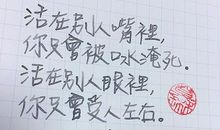 活在别人嘴裡,
你只會被口水淹死。
活在别人眼裡,
你只會受人左右。